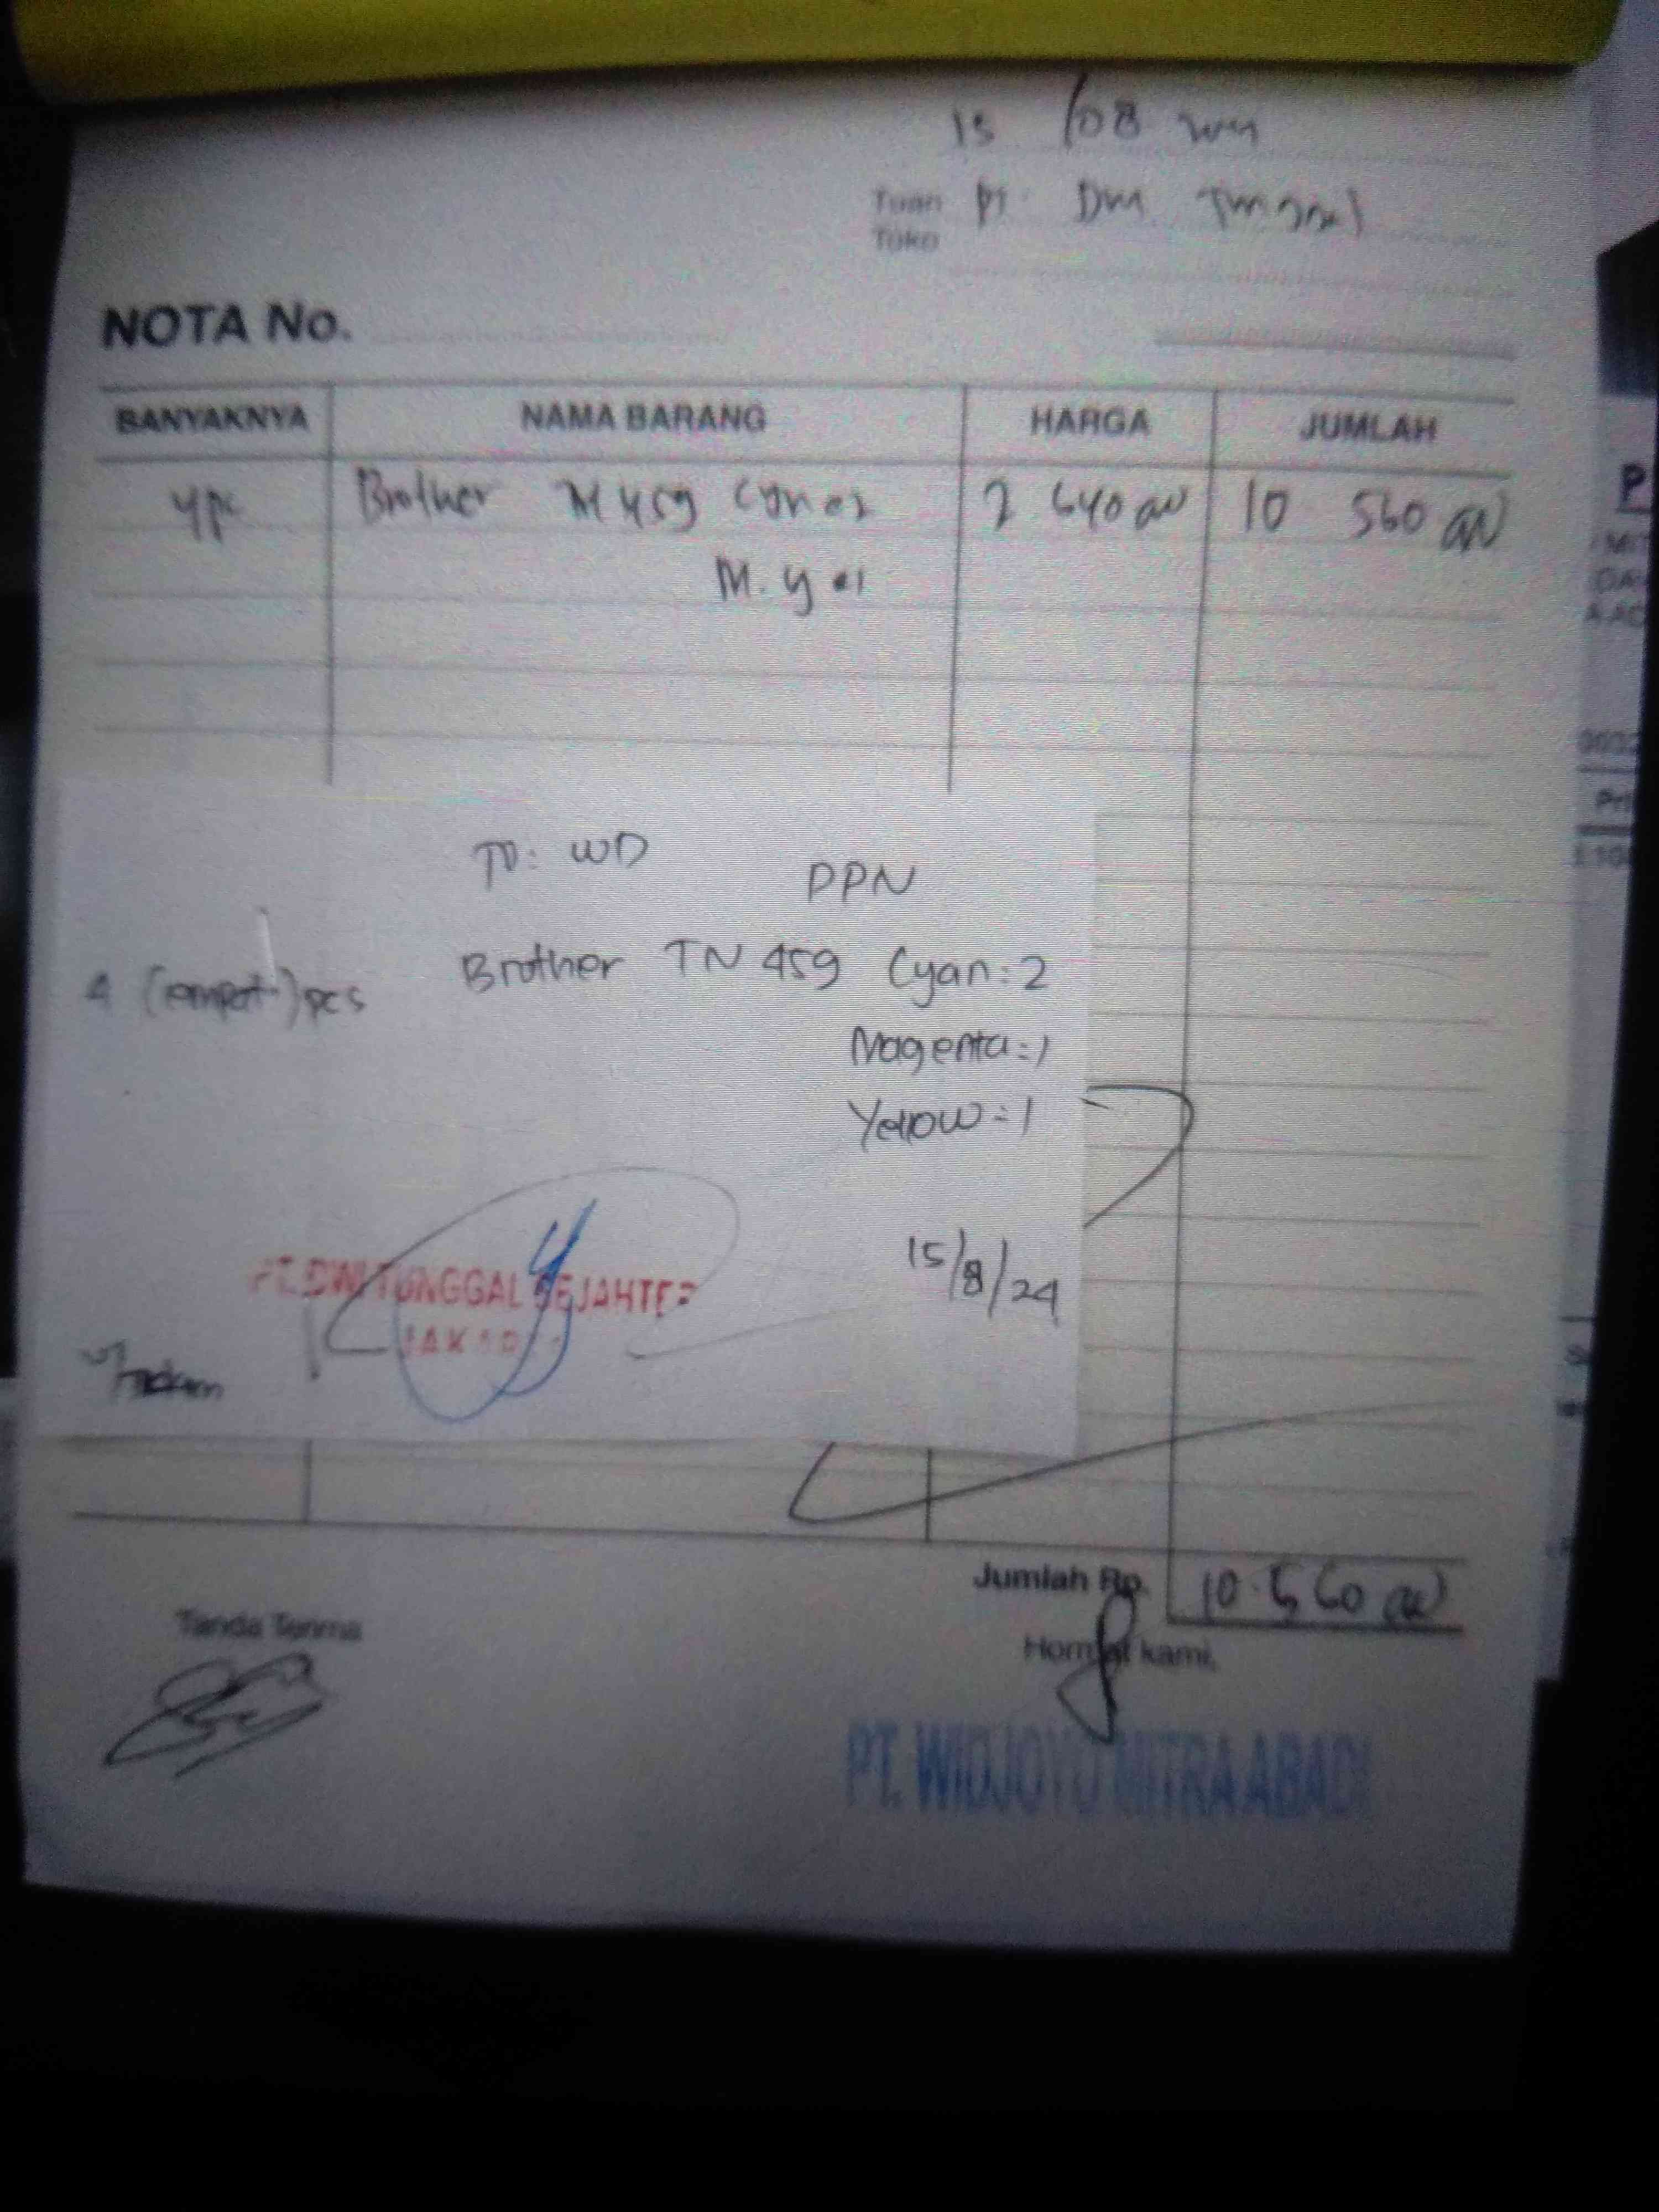 15 /08
Tuan PT.
Toko
NOTA No.
BANYAKNYA NAMA BARANG HARGA JUMLAH
4 pc Brother 459 2 640 10 560
M. y = 1
TO: WD
PPN
Brother TN 459 Cyan: 2
4 (empat) pcs
Magenta: 1
Yellow = 1
15/8/24
PT. DWI TUNGGAL SEJAHTER
Jumlah Rp. 10.560
Tanda Terima
Hormat kami,
PT. WIDJOYO MITRA ABADI